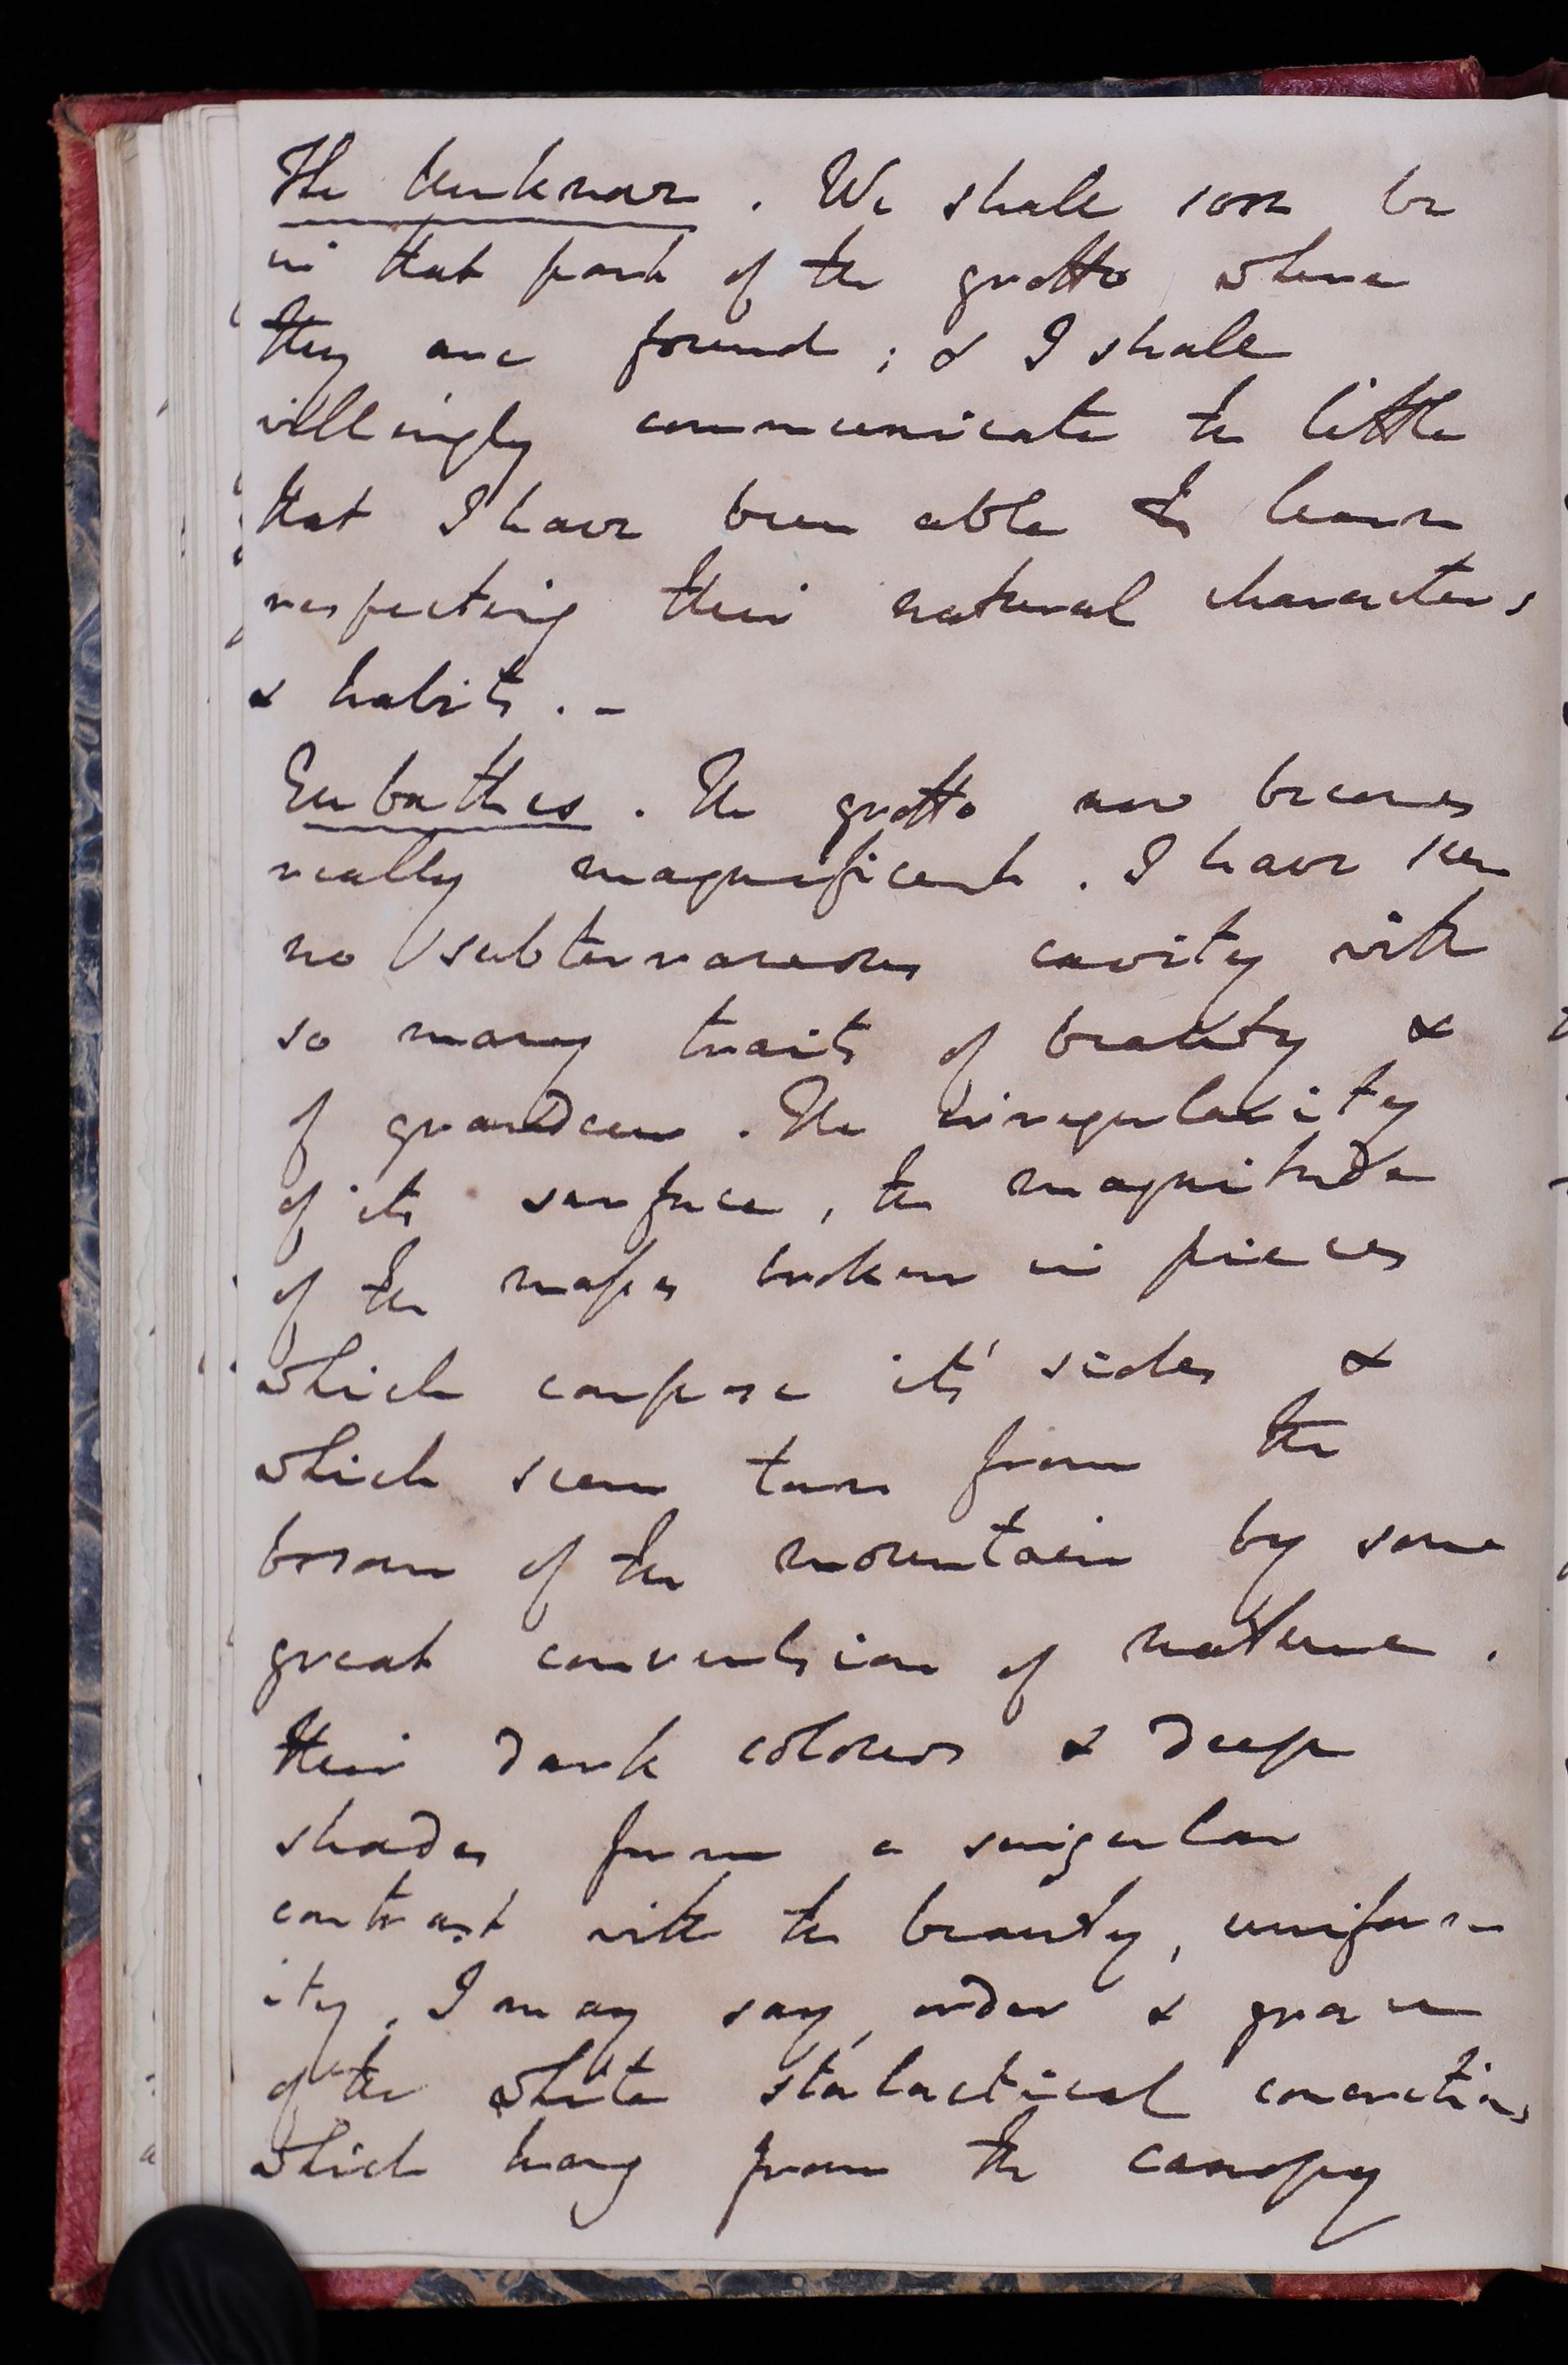 The Unknown. We shall soon be
in that part of the grotto where
they are found; & I shall
willingly communicate the little
that I have been able to learn
respecting their natural characters
& habits. -
Eubathes. The grotto now becomes
really magnificent. I have seen
no subterraneous cavity with
so many traits of beauty &
of grandeur. The irregularity
of its surface, the magnitude
of the masses broken in pieces
which compose it's sides &
which seem torn from the
bosom of the mountain by some
great convulsion of nature.
their dark colours & deep
shades form a singular
contrast with the beauty, uniform
ity, I may say, order & grace
of the white stalactical concretions
which hang from the canopy